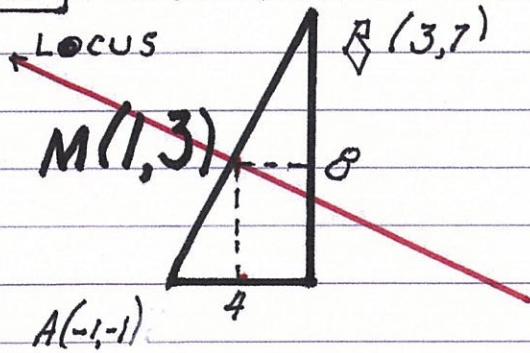 LOCUS
B (3,7)
M(1,3)
8
4
A(-1,-1)